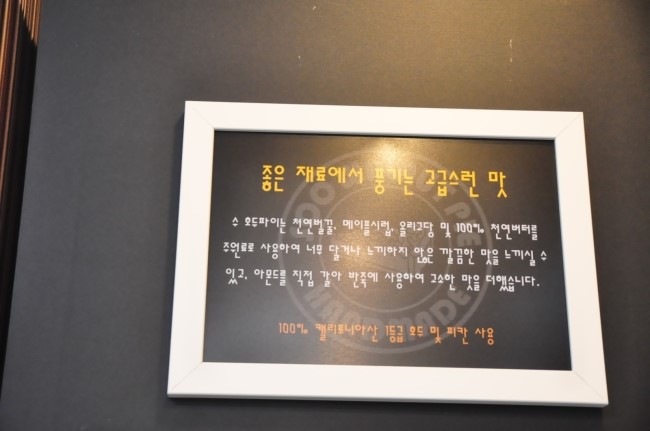 좋은 재료에서 풍기는 고급스런 맛
수 호두파이는 천연벌꿀, 메이플시럽, 올리고당 및 100% 천연버터를
주원료로 사용하여 너무 달거나 느끼하지 않은 깔끔한 맛을 느끼실 수
있고, 아몬드를 직접 갈아 반죽에 사용하여 고소한 맛을 더했습니다.
100% 캘리포니아산 1등급 호두 및 피칸 사용